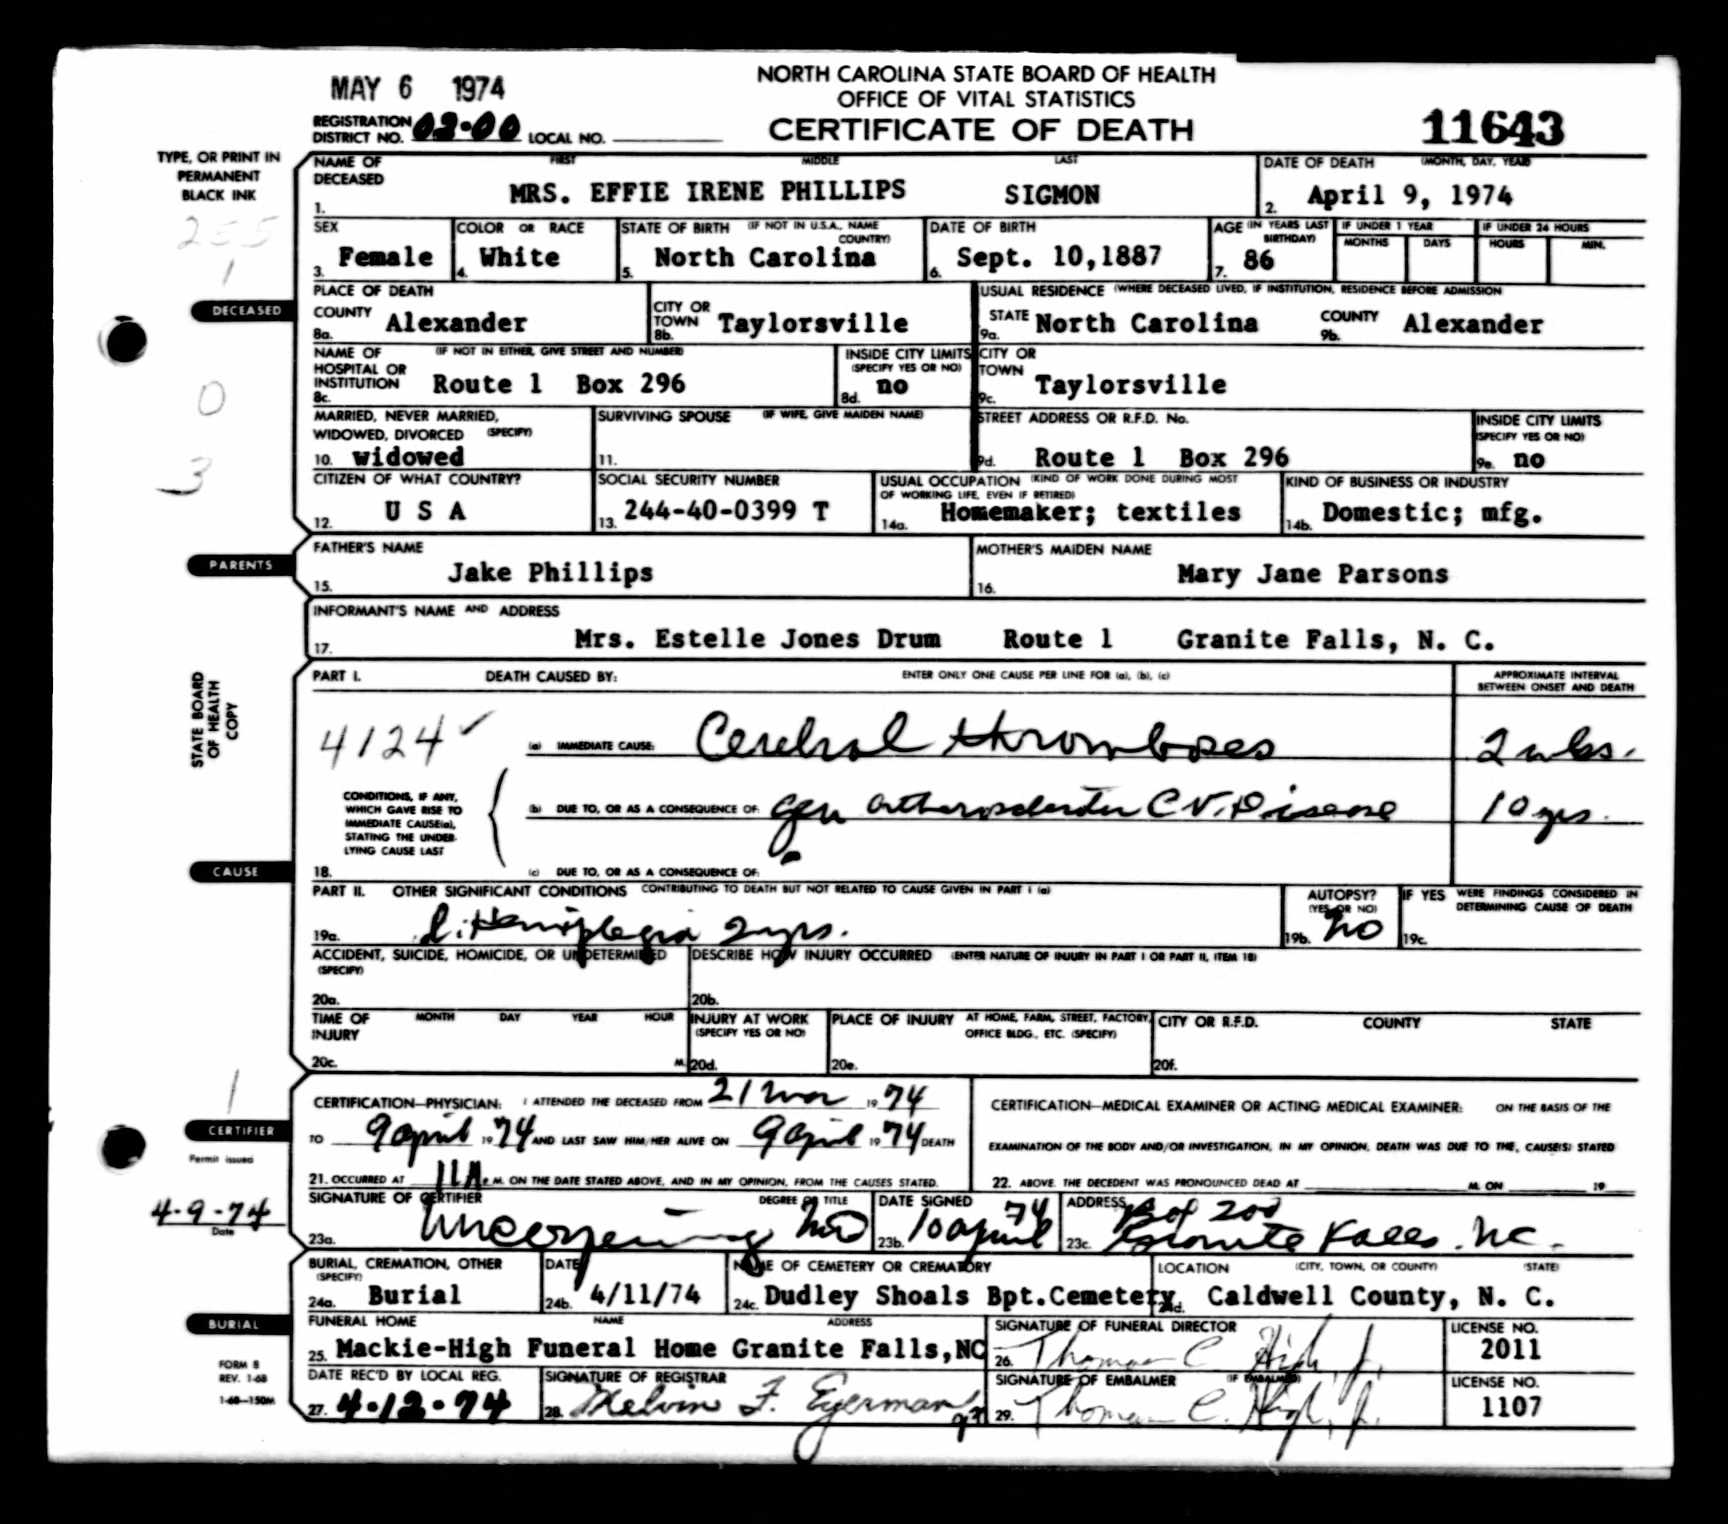 MAY 6 1974
NORTH CAROLINA STATE BOARD OF HEALTH
OFFICE OF VITAL STATISTICS
CERTIFICATE OF DEATH
11643
REGISTRATION DISTRICT NO. 02-00 LOCAL NO.
TYPE, OR PRINT IN PERMANENT BLACK INK
255
1
0
3
DECEASED
NAME OF DECEASED FIRST MIDDLE LAST
1. MRS. EFFIE IRENE PHILLIPS SIGMON
DATE OF DEATH (MONTH, DAY, YEAR)
2. April 9, 1974
SEX
3. Female
COLOR OR RACE
4. White
STATE OF BIRTH (IF NOT IN U.S.A., NAME COUNTRY)
5. North Carolina
DATE OF BIRTH
6. Sept. 10,1887
AGE (IN YEARS LAST BIRTHDAY)
7. 86
IF UNDER 1 YEAR MONTHS DAYS
IF UNDER 24 HOURS HOURS MIN.
PLACE OF DEATH
COUNTY
8a. Alexander
CITY OR TOWN
8b. Taylorsville
USUAL RESIDENCE (WHERE DECEASED LIVED, IF INSTITUTION, RESIDENCE BEFORE ADMISSION
STATE
9a. North Carolina
COUNTY
9b. Alexander
NAME OF HOSPITAL OR INSTITUTION (IF NOT IN EITHER, GIVE STREET AND NUMBER)
8c. Route 1 Box 296
INSIDE CITY LIMITS (SPECIFY YES OR NO)
8d. no
CITY OR TOWN
9c. Taylorsville
MARRIED, NEVER MARRIED, WIDOWED, DIVORCED (SPECIFY)
10. widowed
SURVIVING SPOUSE (IF WIFE, GIVE MAIDEN NAME)
11.
STREET ADDRESS OR R.F.D. No.
9d. Route 1 Box 296
INSIDE CITY LIMITS (SPECIFY YES OR NO)
9e. no
CITIZEN OF WHAT COUNTRY?
12. U S A
SOCIAL SECURITY NUMBER
13. 244-40-0399 T
USUAL OCCUPATION (KIND OF WORK DONE DURING MOST OF WORKING LIFE, EVEN IF RETIRED)
14a. Homemaker; textiles
KIND OF BUSINESS OR INDUSTRY
14b. Domestic; mfg.
PARENTS
FATHER'S NAME
15. Jake Phillips
MOTHER'S MAIDEN NAME
16. Mary Jane Parsons
INFORMANT'S NAME AND ADDRESS
17. Mrs. Estelle Jones Drum Route 1 Granite Falls, N. C.
STATE BOARD OF HEALTH COPY
PART I. DEATH CAUSED BY: ENTER ONLY ONE CAUSE PER LINE FOR (a), (b), (c)
APPROXIMATE INTERVAL BETWEEN ONSET AND DEATH
4124
(a) IMMEDIATE CAUSE: Cerebral thromboses 2 wks.
CONDITIONS, IF ANY, WHICH GAVE RISE TO IMMEDIATE CAUSE(a), STATING THE UNDERLYING CAUSE LAST
(b) DUE TO, OR AS A CONSEQUENCE OF: gen C V. Disease 10 yrs.
CAUSE
18. (c) DUE TO, OR AS A CONSEQUENCE OF:
PART II. OTHER SIGNIFICANT CONDITIONS CONTRIBUTING TO DEATH BUT NOT RELATED TO CAUSE GIVEN IN PART I (a)
19a. Hemiplegia 2 yrs.
AUTOPSY? (YES OR NO)
19b. no
IF YES WERE FINDINGS CONSIDERED IN DETERMINING CAUSE OF DEATH
19c.
ACCIDENT, SUICIDE, HOMICIDE, OR UNDETERMINED (SPECIFY)
20a.
DESCRIBE HOW INJURY OCCURRED (ENTER NATURE OF INJURY IN PART I OR PART II, ITEM 18)
20b.
TIME OF INJURY MONTH DAY YEAR HOUR
20c. M.
INJURY AT WORK (SPECIFY YES OR NO)
20d.
PLACE OF INJURY AT HOME, FARM, STREET, FACTORY, OFFICE BLDG., ETC. (SPECIFY)
20e.
CITY OR R.F.D. COUNTY STATE
20f.
1
CERTIFIER
CERTIFICATION—PHYSICIAN: I ATTENDED THE DECEASED FROM 21 Mar 19 74
TO 9 April 19 74 AND LAST SAW HIM/HER ALIVE ON 9 April 19 74 DEATH
21. OCCURRED AT 11 A M. ON THE DATE STATED ABOVE, AND IN MY OPINION, FROM THE CAUSES STATED.
CERTIFICATION—MEDICAL EXAMINER OR ACTING MEDICAL EXAMINER: ON THE BASIS OF THE
EXAMINATION OF THE BODY AND/OR INVESTIGATION, IN MY OPINION, DEATH WAS DUE TO THE, CAUSE(S) STATED
22. ABOVE. THE DECEDENT WAS PRONOUNCED DEAD AT M. ON 19
Permit issued
4-9-74
Date
SIGNATURE OF CERTIFIER DEGREE OR TITLE
23a. MD
DATE SIGNED
23b. 10 April 74
ADDRESS
23c. Box 200 Granite Falls. NC.
BURIAL
BURIAL, CREMATION, OTHER (SPECIFY)
24a. Burial
DATE
24b. 4/11/74
NAME OF CEMETERY OR CREMATORY
24c. Dudley Shoals Bpt.Cemetery
LOCATION (CITY, TOWN, OR COUNTY) (STATE)
24d. Caldwell County, N. C.
FUNERAL HOME NAME ADDRESS
25. Mackie-High Funeral Home Granite Falls,NC
SIGNATURE OF FUNERAL DIRECTOR
26. Thomas C. High, Jr.
LICENSE NO.
2011
FORM 8
REV. 1-68
1-68—150M
DATE REC'D BY LOCAL REG.
27. 4-12-74
SIGNATURE OF REGISTRAR
28. Melvin F. Eyerman
SIGNATURE OF EMBALMER (IF EMBALMED)
29. Thomas C. High, Jr.
LICENSE NO.
1107